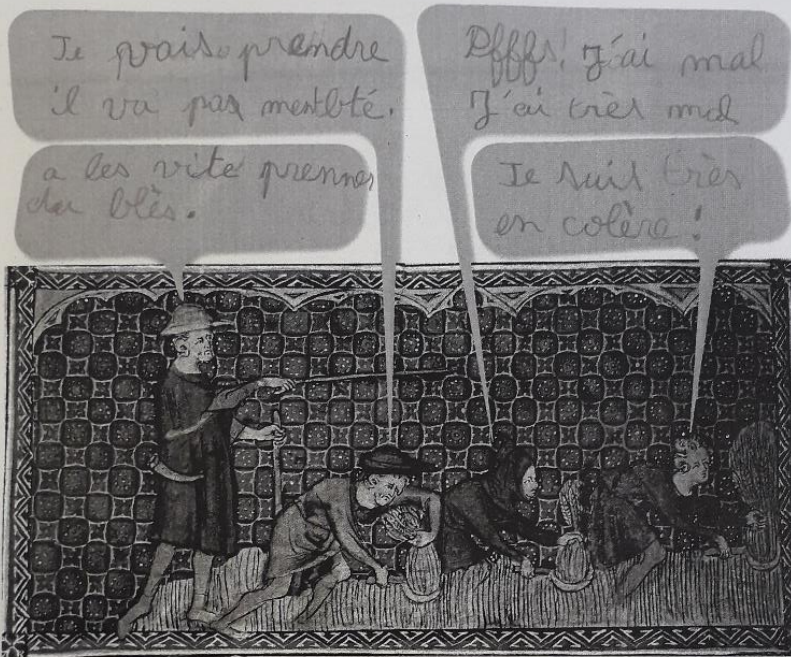 Je vais prendre
il va pas
a les vite prennes
du blès.
Pffff! J'ai mal
J'ai très mal
Je suis très
en colère!